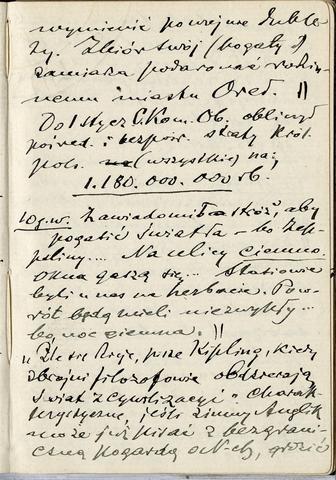 wymienić powyższe duble-
ty. Zbiór twój (bogaty!)
zamiaza podarować rodzin-
nemu miastu Oreł. ||
Do 1 stycz. Kom. Ob. obliczył
pośred. i bezpośr. straty Król.
pols. (wszystkie) na:
1.180.000.000 rb.
10 g.w. Zawiadomiła stróż, aby
pogasić światła – bo Zep-
peliny.... Na ulicy ciemno.
Okna gaszą się...
byli u nas na herbacie. Pow-
rót będą mieli niezwykły –
bo noc ciemna. ||
"Złe są , pisze Kipling, kiedy
zbrojni filozofowie obdzierają
świat z cywilizacyi". Charak-
terystyczne, jeśli zimny Anglik
może już pisać z bezgrani-
czną pogardą o N-ch,